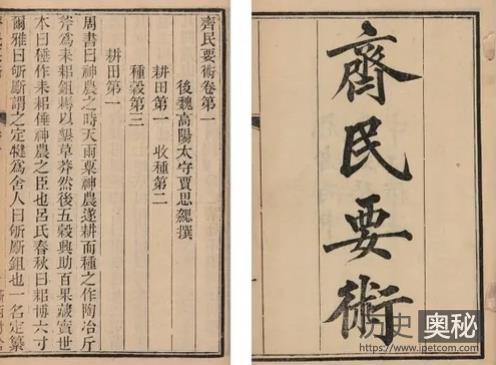 齊民要術
齊民要術卷第一
後魏高陽太守賈思勰撰
耕田第一 收種第二
種穀第三
耕田第一
周書曰神農之時天雨粟神農遂耕而種之作陶冶斤
斧為耒耜鉏耨以墾草莽然後五穀興助百果藏實世
本曰倕作耒耜倕神農之臣也呂氏春秋曰耜博六寸
爾雅曰斪斸謂之定犍為舍人曰斪斸鉏也一名定纂
历史奥秘
https://www.ipetcom.com